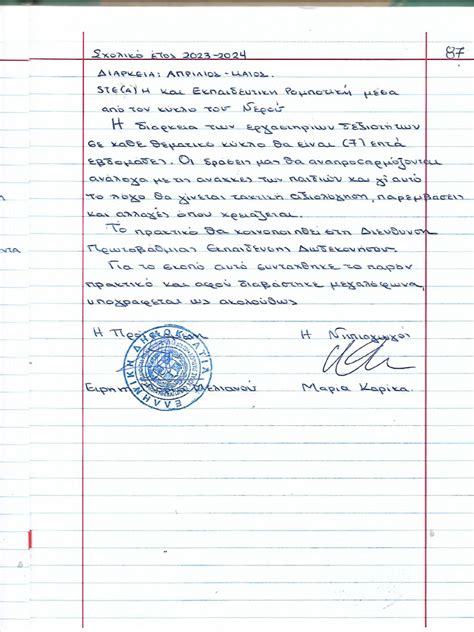 Σχολικό έτος 2023-2024
87
ΔΙΑΡΚΕΙΑ: ΑΠΡΙΛΙΟΣ-ΜΑΙΟΣ
STE(A)M και Εκπαιδευτική Ρομποτική μέσα
από τον κύκλο του Νερού
Η διάρκεια των εργαστηρίων δεξιοτήτων
σε κάθε θεματικό κύκλο θα είναι (7) επτά
εβδομάδες. Οι δράσεις μας θα αναπροσαρμόζονται
ανάλογα με τις ανάγκες των παιδιών και γι' αυτό
το λόγο θα γίνεται τακτική αξιολόγηση, παρεμβάσεις
και αλλαγές όπου χρειάζεται.
Το πρακτικό θα κοινοποιηθεί στη Διεύθυνση
Πρωτοβάθμιας Εκπαίδευσης Δωδεκανήσου.
Για το σκοπό αυτό συντάχθηκε το παρόν
πρακτικό και αφού διαβάστηκε μεγαλόφωνα,
υπογράφεται ως ακολούθως
Η Η Νηπιαγωγός
ΕΛΛΗΝΙΚΗ ΔΗΜΟΚΡΑΤΙΑ
Μαρία Καρίκα.